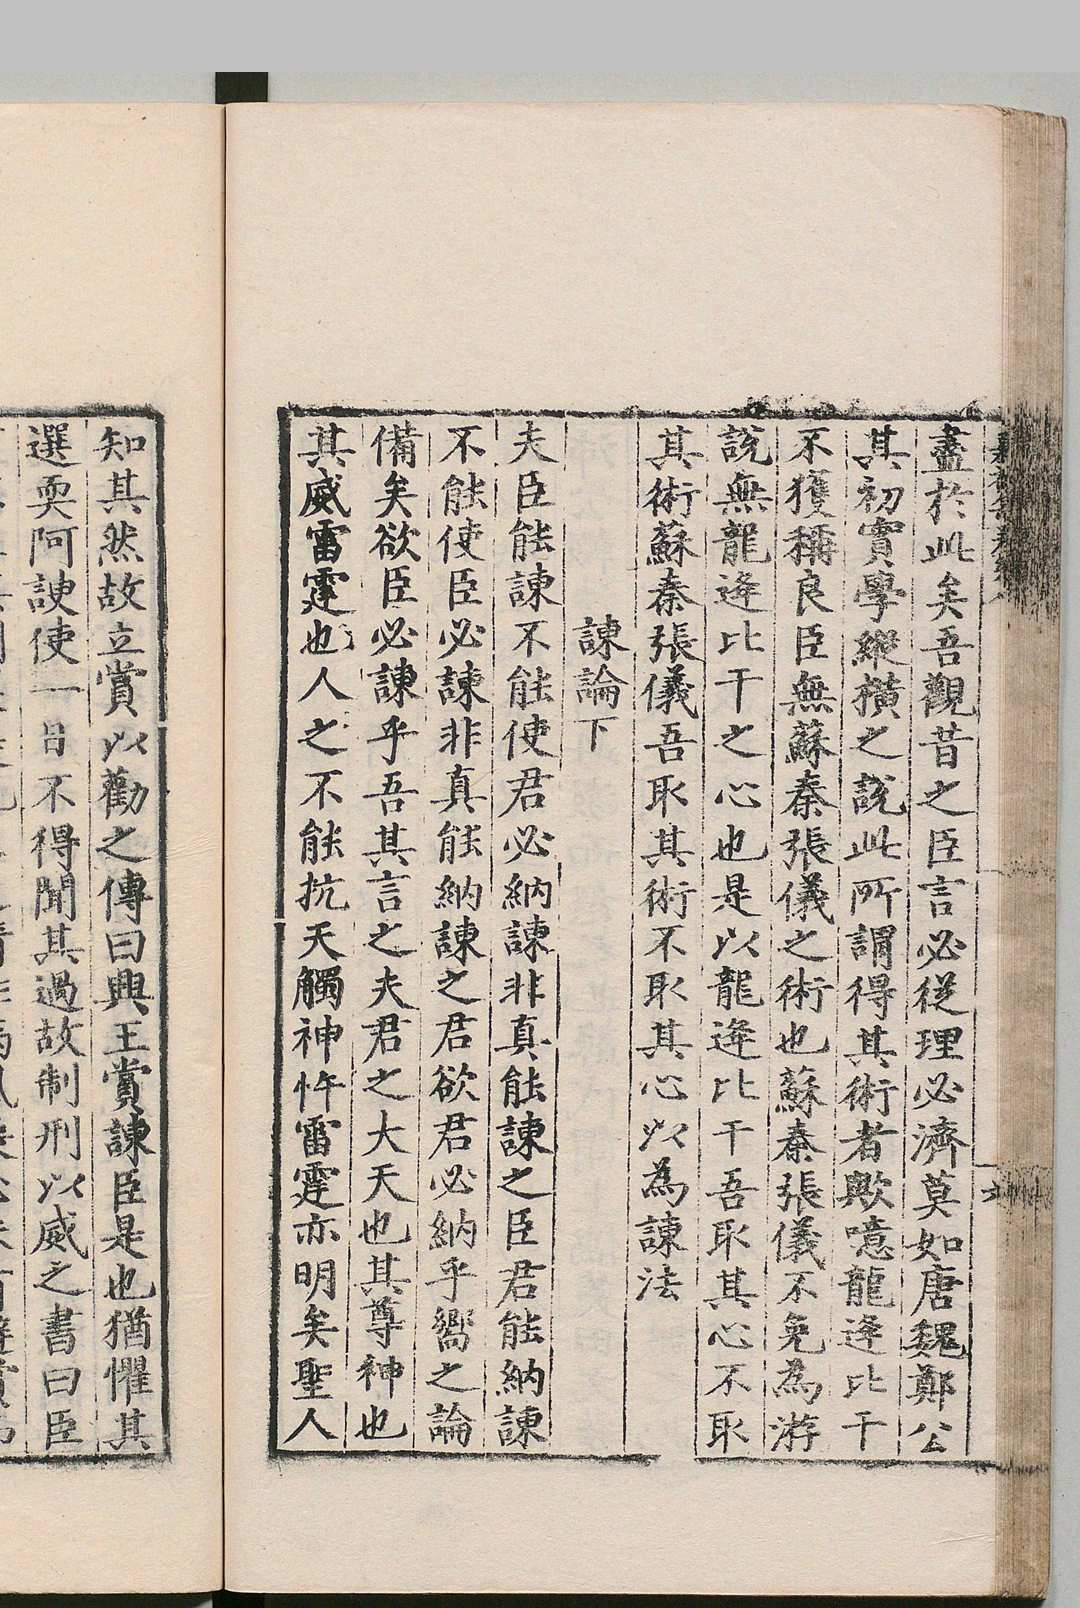 盡於此矣吾觀昔之臣言必從理必濟莫如唐魏鄭公
其初實學縱橫之說此所謂得其術者歟噫龍逄比干
不獲稱良臣無蘇秦張儀之術也蘇秦張儀不免為游
說無龍逄比干之心也是以龍逄比干吾取其心不取
其術蘇秦張儀吾取其術不取其心以為諫法
諫論下
夫臣能諫不能使君必納諫非真能諫之臣君能納諫
不能使臣必諫非真能納諫之君欲君必納乎嚮之論
備矣欲臣必諫乎吾其言之夫君之大天也其尊神也
其威雷霆也人之不能抗天觸神忤雷霆亦明矣聖人
知其然故立賞以勸之傳曰興王賞諫臣是也猶懼其
選耎阿諛使一日不得聞其過故制刑以威之書曰臣